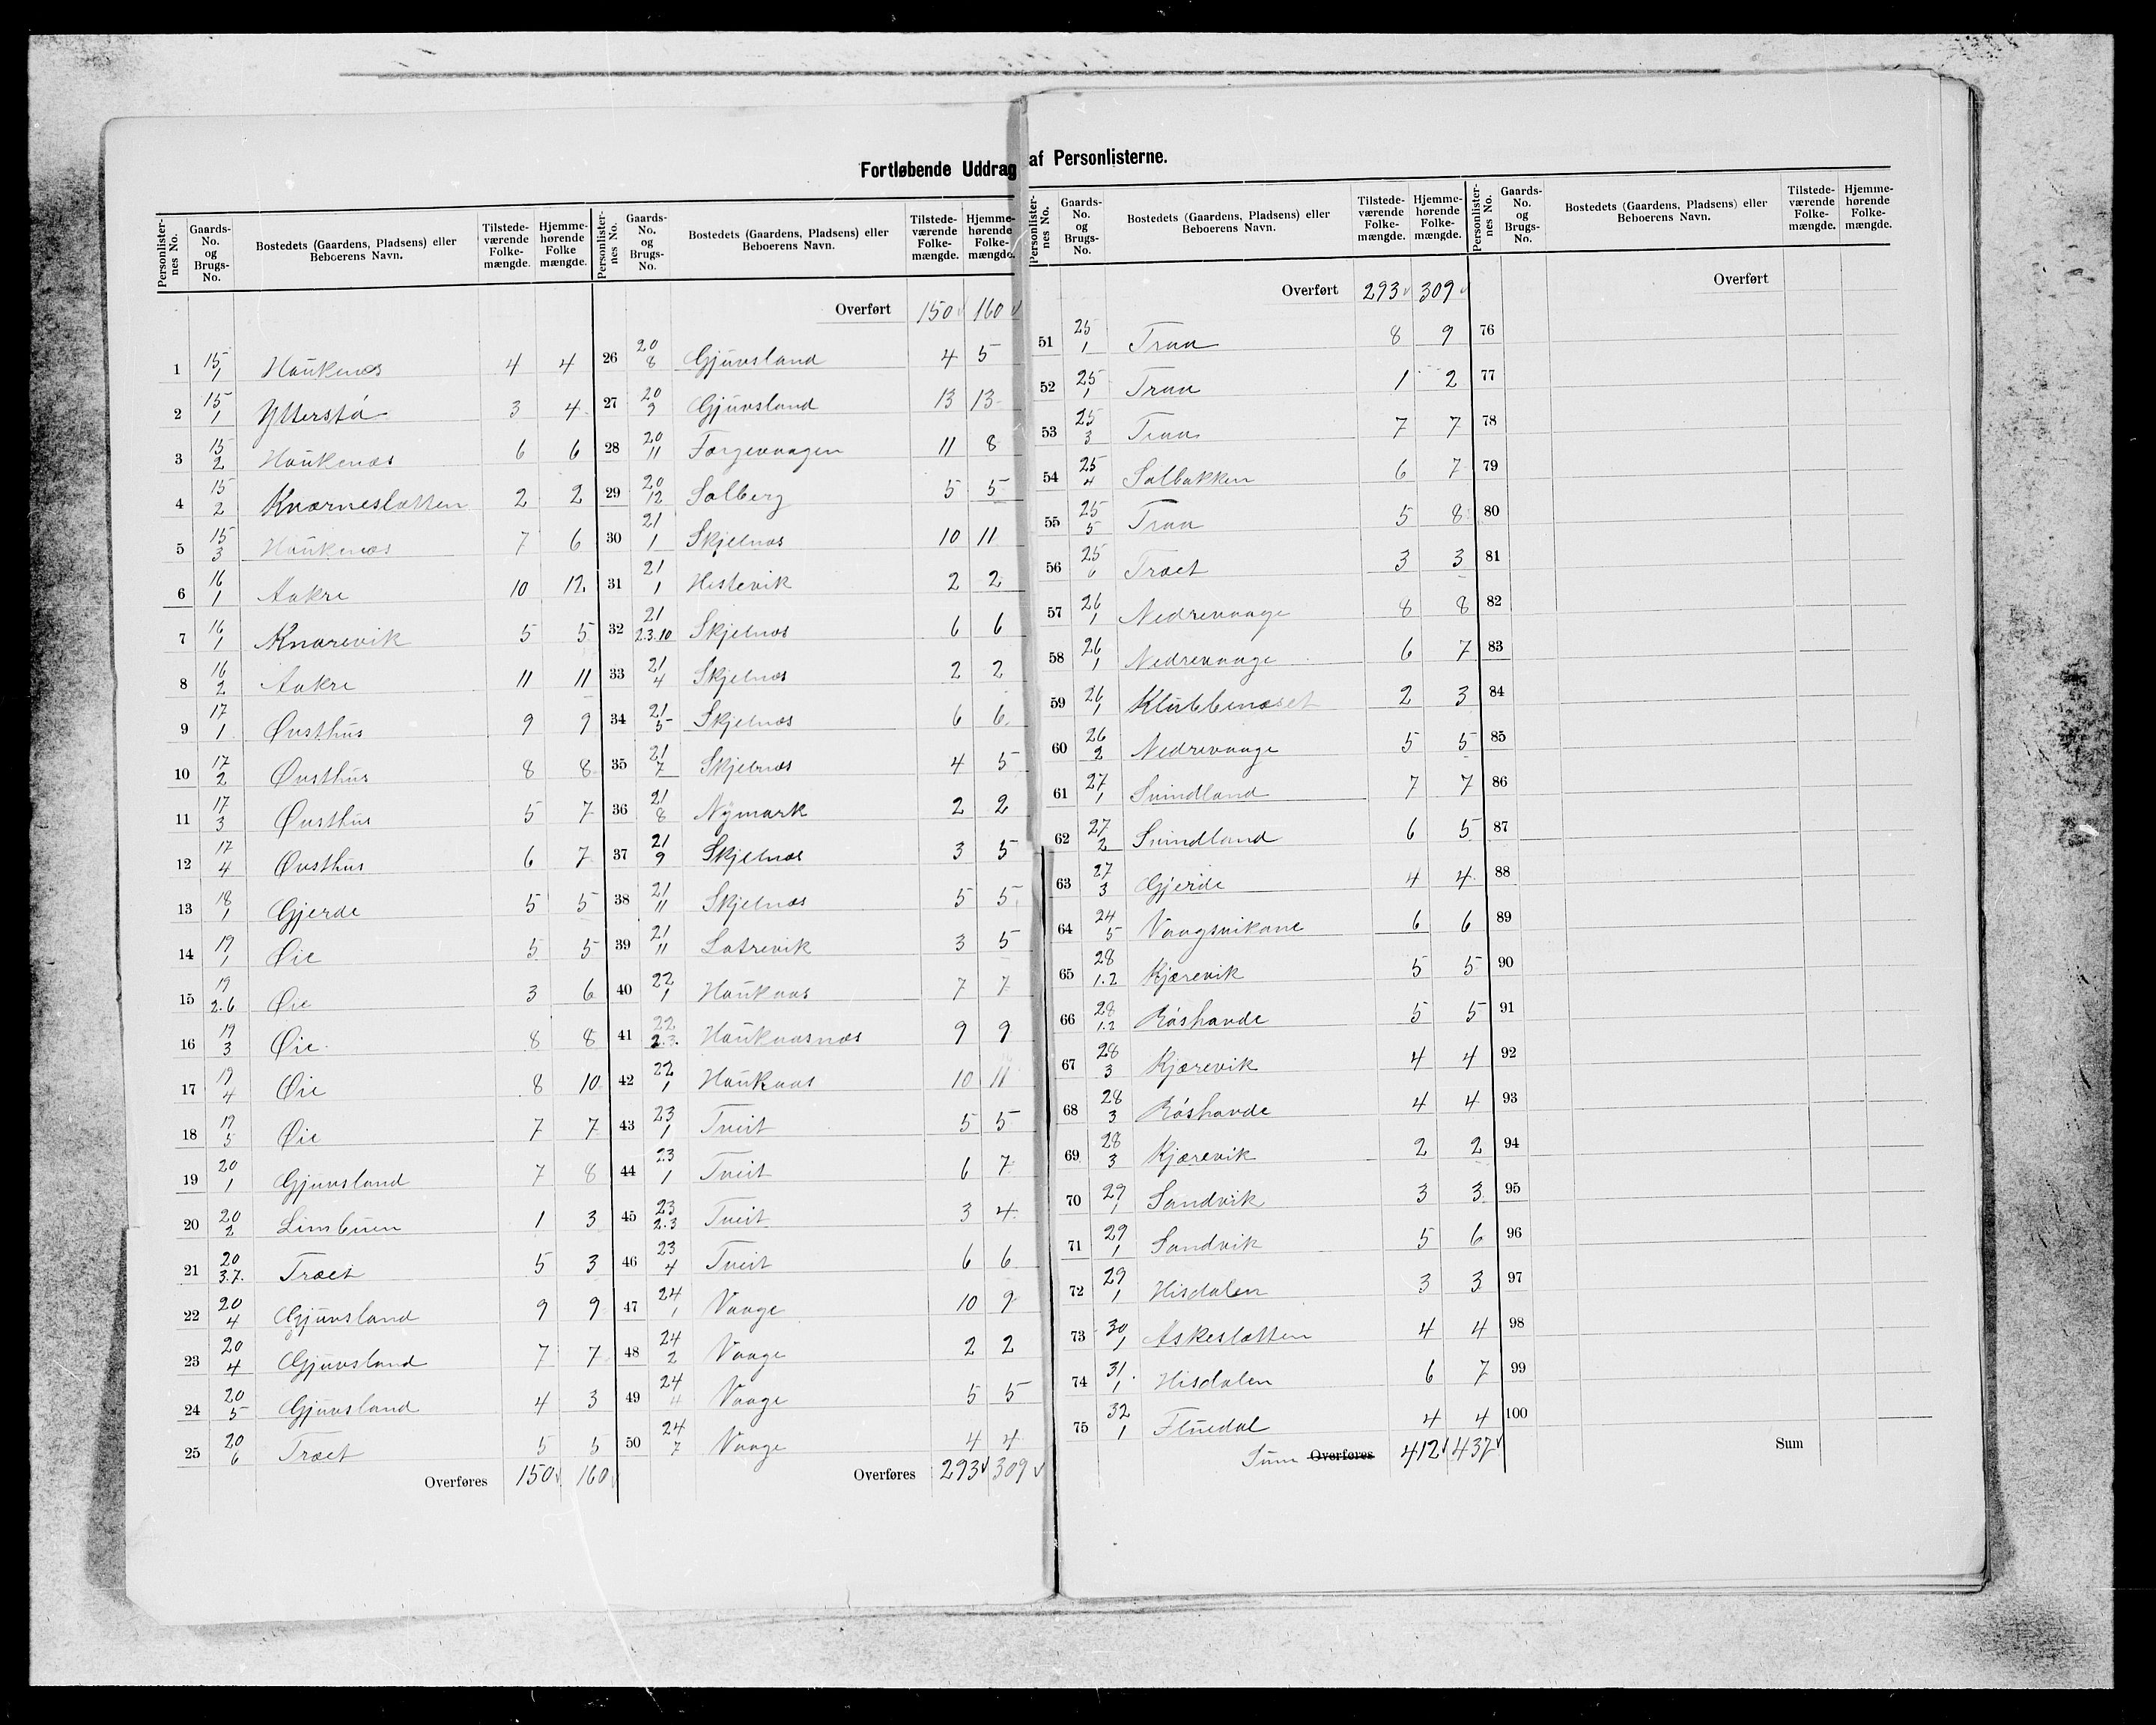 Fortløbende Uddrag af Personlisterne.
Personlisternes No. Gaards-No. og Brugs-No. Bostedets (Gaardens, Pladsens) eller Beboerens Navn. Tilstedeværende Folkemængde. Hjemmehørende Folkemængde.
1 15/1 Haukenæs 4 4
2 15/1 Ytterstø 3 4
3 15/2 Haukenæs 6 6
4 15/2 Kværneslætten 2 2
5 15/3 Haukenæs 7 6
6 16/1 Aakre 10 12
7 16/1 Knarevik 5 5
8 16/2 Aakre 11 11
9 17/1 Øvsthus 9 9
10 17/2 Øvsthus 8 8
11 17/3 Øvsthus 5 7
12 17/4 Øvsthus 6 7
13 18/1 Gjerde 5 5
14 19/1 Øie 5 5
15 19/2.6 Øie 3 6
16 19/3 Øie 8 8
17 19/4 Øie 8 10
18 19/5 Øie 7 7
19 20/1 Gjuvsland 7 8
20 20/2 Limbuen 1 3
21 20/3.7. Træet 5 3
22 20/4 Gjuvsland 9 9
23 20/4 Gjuvsland 7 7
24 20/5 Gjuvsland 4 3
25 20/6 Træet 5 5
Overføres 150 160
Personlisternes No. Gaards-No. og Brugs-No. Bostedets (Gaardens, Pladsens) eller Beboerens Navn. Tilstedeværende Folkemængde. Hjemmehørende Folkemængde.
Overført 150 160
26 20/8 Gjuvsland 4 5
27 20/9 Gjuvsland 13 13
28 20/11 Færgevaagen 11 8
29 20/12 Solberg 5 5
30 21/1 Skjelnæs 10 11
31 21/1 Hestevik 2 2
32 21/2.3.10 Skjelnæs 6 6
33 21/4 Skjelnæs 2 2
34 21/5 Skjelnæs 6 6
35 21/7 Skjelnæs 4 5
36 21/8 Nymark 2 2
37 21/9 Skjelnæs 3 5
38 21/11 Skjelnæs 5 5
39 21/11 Latrevik 3 5
40 22/1 Haukaas 7 7
41 22/2.3. Haukaasnæs 9 9
42 22/1 Haukaas 10 11
43 23/1 Tveit 5 5
44 23/1 Tveit 6 7
45 23/2.3 Tveit 3 4
46 23/4 Tveit 6 6
47 24/1 Vaage 10 9
48 24/2 Vaage 2 2
49 24/4 Vaage 5 5
50 24/7 Vaage 4 4
Overføres 293 309
Personlisternes No. Gaards-No. og Brugs-No. Bostedets (Gaardens, Pladsens) eller Beboerens Navn. Tilstedeværende Folkemængde. Hjemmehørende Folkemængde.
Overført 293 309
51 25/1 Traa 8 9
52 25/1 Traa 1 2
53 25/3 Traa 7 7
54 25/4 Solbakken 6 7
55 25/5 Traa 5 8
56 25/6 Træet 3 3
57 26/1 Nedrevaage 8 8
58 26/1 Nedrevaage 6 7
59 26/1 Klubbenæset 2 3
60 26/2 Nedrevaage 5 5
61 27/1 Svindland 7 7
62 27/2 Svindland 6 5
63 27/3 Gjerde 4 4
64 24/5 Vaagsvikane 6 6
65 28/1.2 Kjærevik 5 5
66 28/1.2 Røshavde 5 5
67 28/3 Kjærevik 4 4
68 28/3 Røshavde 4 4
69 28/3 Kjærevik 2 2
70 29/1 Sandvik 3 3
71 29/1 Sandvik 5 6
72 29/1 Hisdalen 3 3
73 30/1 Askeslætten 4 4
74 31/1 Hisdalen 6 7
75 32/1 Fluedal 4 4
Sum Overføres 412 437
Personlisternes No. Gaards-No. og Brugs-No. Bostedets (Gaardens, Pladsens) eller Beboerens Navn. Tilstedeværende Folkemængde. Hjemmehørende Folkemængde.
Overført
76
77
78
79
80
81
82
83
84
85
86
87
88
89
90
91
92
93
94
95
96
97
98
99
100
Sum